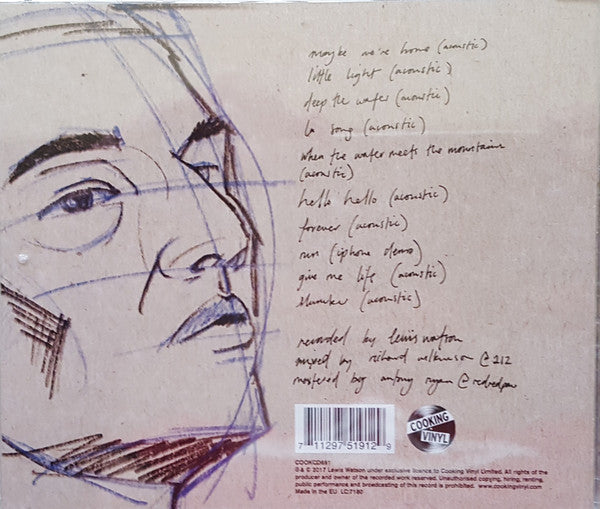 maybe we're home (acoustic)
little light (acoustic)
deep the water (acoustic)
la song (acoustic)
when the water meets the mountains
(acoustic)
hello hello (acoustic)
forever (acoustic)
run (iphone demo)
give me life (acoustic)
slumber (acoustic)
recorded by lewis watson
mixed by richard wilkinson @ 212
mastered by antony ryan @ redredpaw
7 11297 51912 9
COOKING
VINYL
COOKCD681
℗ & © 2017 Lewis Watson under exclusive licence to Cooking Vinyl Limited. All rights of the
producer and owner of the recorded work reserved. Unauthorised copying, hiring, renting,
public performance and broadcasting of this record is prohibited. www.cookingvinyl.com
Made in the EU LC:7180